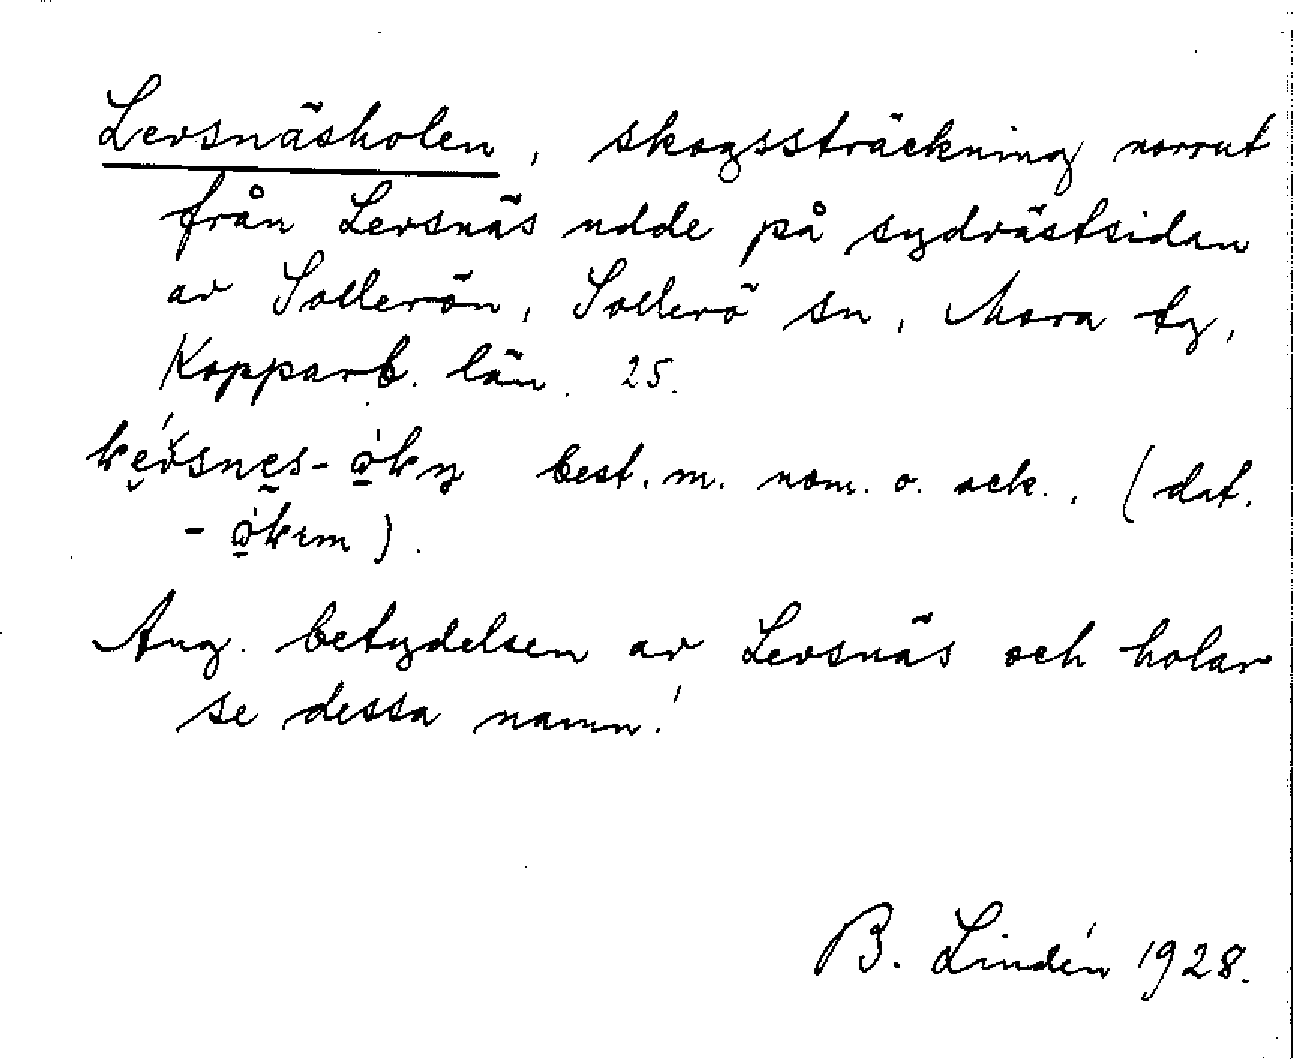 Levsnäsholen, skogssträckning norrut
från Levsnäs udde på sydvästsidan
av Sollerön, Sollerö sn, Mora tg,
Kopparb. län. 25.
best. m. nom. o. ack., (dat.
Ang. betydelsen av Levsnäs och holar
se dessa namn!
B. Lindén 1928.